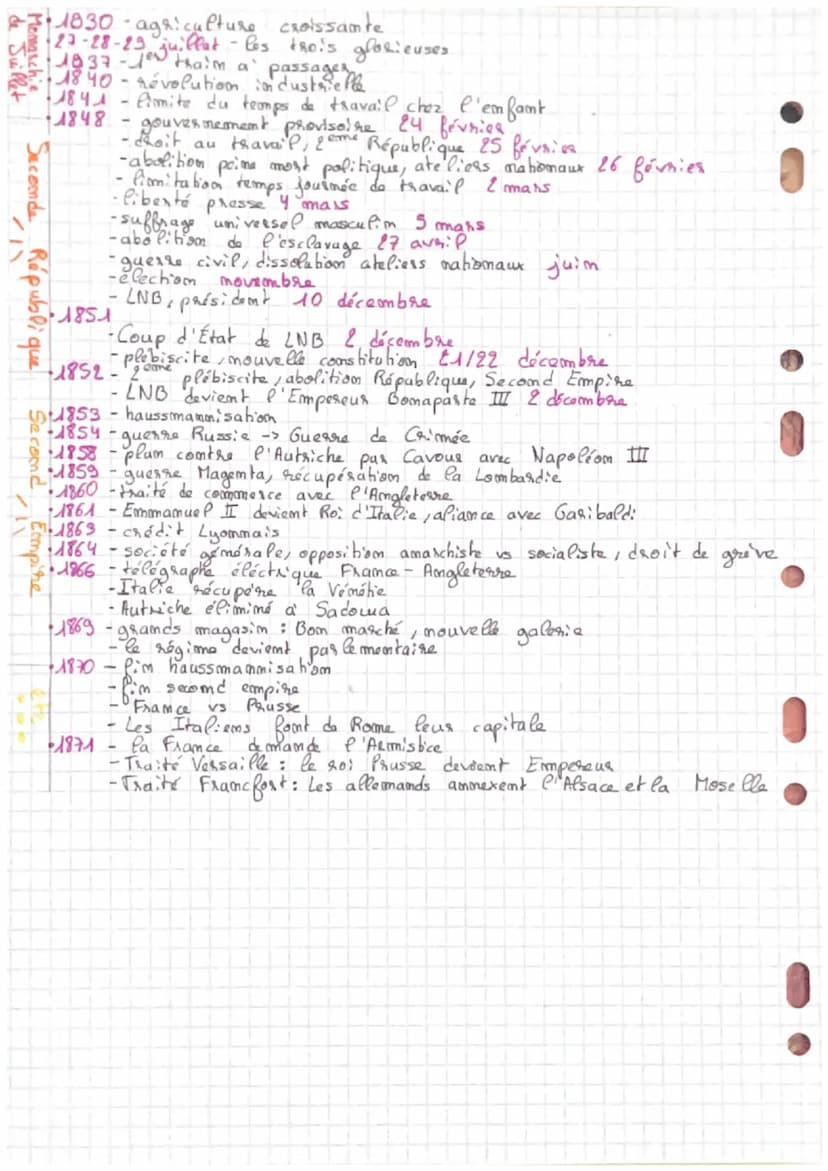 Monarchie de Juillet
• 1830 - agriculture croissante
27-28-29 juillet - les trois glorieuses
• 1837 - 1er train à passager
• 1840 - révolution industrielle
• 1841 - limite du temps de travail chez l'enfant
• 1848 - gouvernement provisoire 24 février
- droit au travail, 2ème République 25 février
- abolition peine mort politique, ateliers nationaux 26 février
- limitation temps journée de travail 2 mars
- liberté presse 4 mars
- suffrage universel masculin 5 mars
- abolition de l'esclavage 27 avril
- guerre civil, dissolution ateliers nationaux juin
- élection novembre
- LNB, président 10 décembre
Seconde République
• 1851
- Coup d'État de LNB 2 décembre
- plébiscite, nouvelle constitution 21/22 décembre
• 1852 - 2ème plébiscite, abolition République, Second Empire
- LNB devient l'Empereur Bonaparte III 2 décembre
Second Empire
• 1853 - haussmannisation
• 1854 - guerre Russie -> Guerre de Crimée
• 1858 - plan contre l'Autriche par Cavour avec Napoléon III
• 1859 - guerre Magenta, récupération de la Lombardie
• 1860 - traité de commerce avec l'Angleterre
• 1861 - Emmanuel II devient Roi d'Italie, aliance avec Garibaldi
• 1863 - crédit Lyonnais
• 1864 - société générale, opposition anarchiste vs socialiste, droit de grève
• 1866 - télégraphe éléctrique France - Angleterre
- Italie récupère la Vénétie
- Autriche éliminé à Sadowa
• 1869 - grands magasin : Bon marché, nouvelle galerie
- le régime devient parlementaire
• 1870 - fin haussmannisation
- fin second empire
- France vs Prusse
- Les Italiens font de Rome leur capitale
etc...
• 1871 - la France demande l'Armistice
- Traité Versaille : le roi Prusse devient Empereur
- Traité Francfort : Les allemands annexent l'Alsace et la Moselle